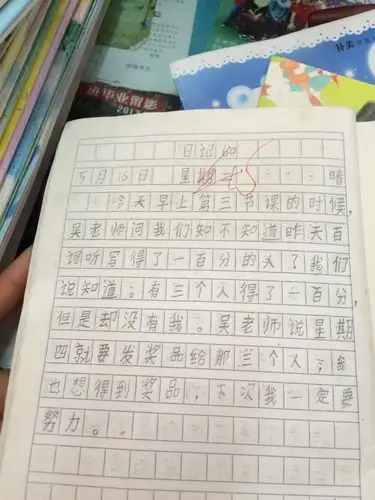 日记60
5月16日 星期二 晴
今天早上第三节课的时候,
吴老师问我们知不知道昨天百
词听写得了一百分的人?我们
说知道。有三个人得了一百分,
但是却没有我。吴老师说星期
四就要发奖品给那三个人,我
也想得到奖品,下次我一定要
努力。